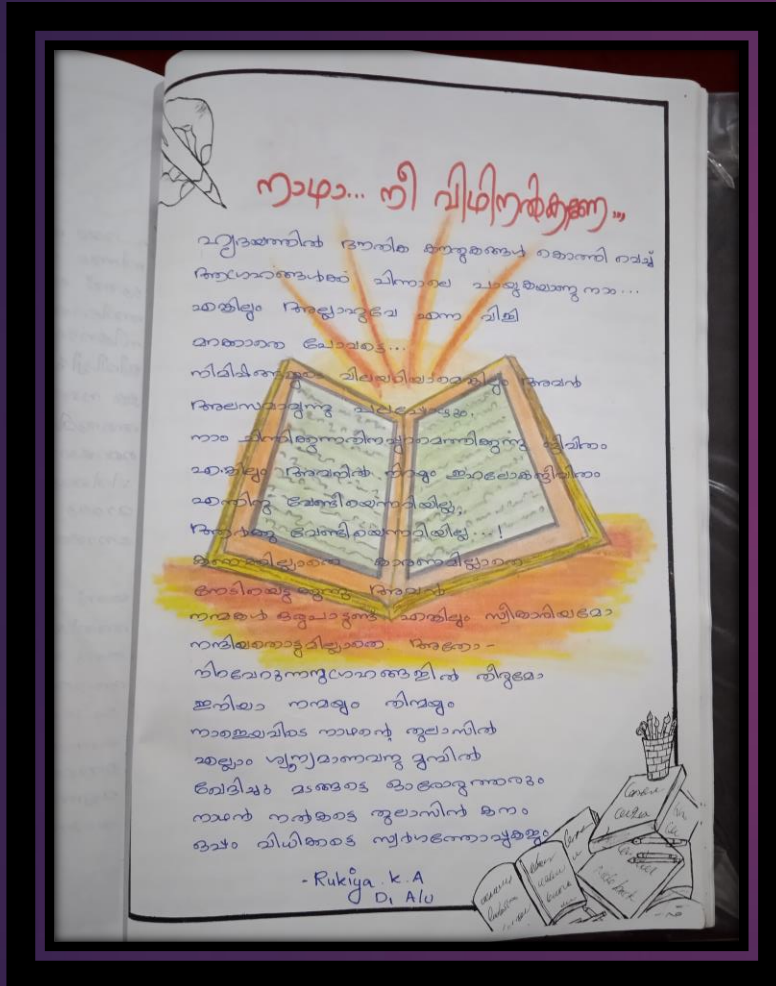 നാഥാ... നീ വിധിനൽകണേ...
ഹൃദയത്തിൽ ഭൗതിക കൗതുകങ്ങൾ കൊത്തി വെച്ച്
ആഗ്രഹങ്ങൾക്ക് പിന്നാലെ പായുകയാണു നാം...
എങ്കിലും അല്ലാഹുവേ എന്ന വിളി
മറക്കാതെ പോവട്ടെ...
നിമിഷങ്ങളുടെ വിലയറിയാമെങ്കിലും അവൻ
അലസമാവുന്നു പലപ്പോഴും.
നാം ചിന്തിക്കുന്നതിനപ്പുറമെത്തിക്കുന്നു ജീവിതം
എങ്കിലും അവനിൽ നിറയും ഇഹലോകജീവിതം
എന്തിനു വേണ്ടിയെന്നറിയില്ല,
ആർക്കു വേണ്ടിയെന്നറിയില്ല...!
കാരണമില്ലാതെ
നേടിയെടുക്കുന്നു അവൻ
നന്മകൾ ഒരുപാടുണ്ട് എങ്കിലും സ്വീകാര്യമോ
നന്ദിയതൊട്ടുമില്ലാതെ അതോ-
നിറവേറുന്നനുഗ്രഹങ്ങളിൽ തീരുമോ
ഇനിയാ നന്മയും തിന്മയും
നാളെയവിടെ നാഥന്റെ തുലാസിൽ
എല്ലാം ശൂന്യമാണവനു മുമ്പിൽ
ഖേദിച്ചു മടങ്ങട്ടെ ഓരോരുത്തരും
നാഥൻ നൽകട്ടെ തുലാസിൻ കനം
ഒപ്പം വിധിക്കട്ടെ സ്വർഗത്തോപ്പുകളും
- Rukiya. K. A
D1 A/U